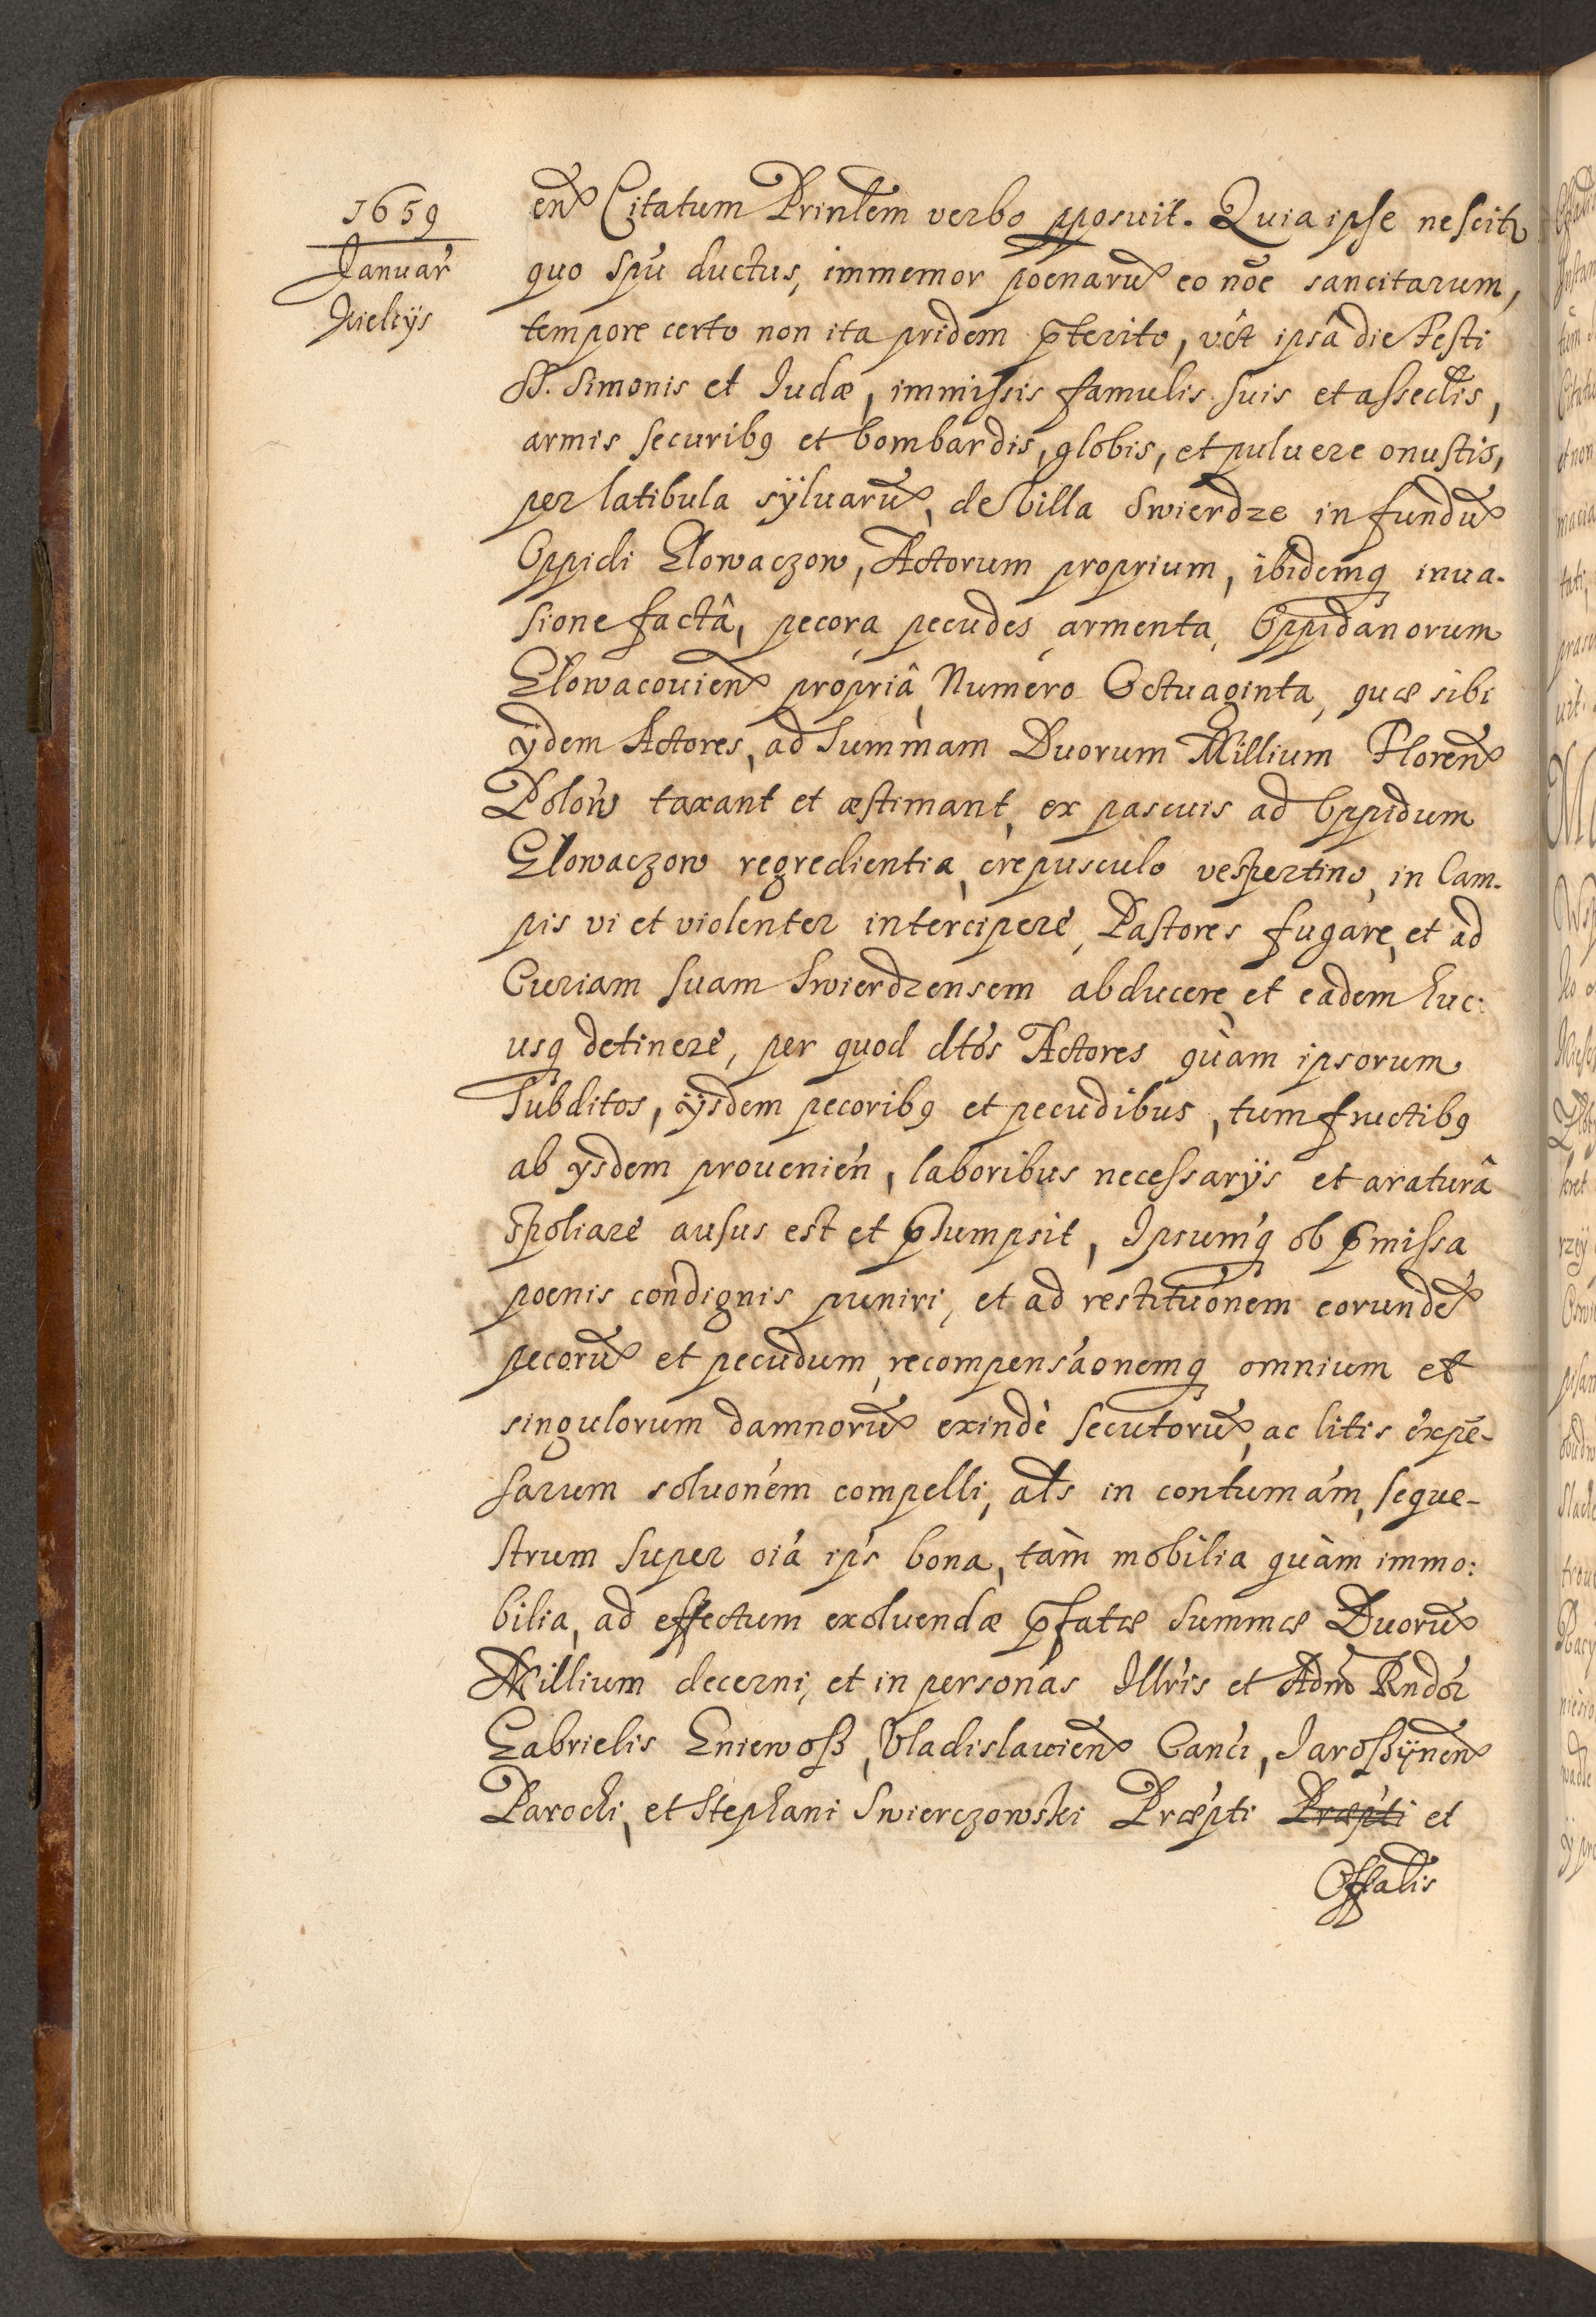 1659
Januar̃
Kielcijs
en̄ Citatum Prin̄lem verbo pposuit. Quia ipse nescitr
quo spũ ductus, immemor poenarũ eo nõe sancitarum,
tempore certo non ita pridem p̃terito, vct ipsâ die Festi
SS. Simonis et Judæ, immissis famulis suis et asseclis,
armis securibq et bombardis, globis, et puluere onustis,
per latibula sÿluarũ, de Villa Swierdze in fundũ
Oppidi Glowaczow, Actorum proprium, ibidemq inua-
sione factâ, pecora pecudes armenta, Oppidanorum
Glowacouien̄ propriâ, Numero Octuaginta, quæ sibi
ÿdem Actores, ad Summam Duorum Millium Floren̄
Polon̄ taxant et æstimant, ex pascuis ad Oppidum
Glowaczow regredientia, crepusculo vespertino, in Cam-
pis vi et violenter intercipere, Pastores fugare, et ad
Curiam suam Swierdzensem abducere, et eadem huc:
usq detinere, per quod dtos Actores quàm ipsorum
Subditos, ÿsdem pecoribq et pecudibus, tum fructibq
ab ÿsdem prouenien̄, laboribus necessarÿs et araturâ
spoliare ausus est et p̃sumpsit, Ipsumq ob p̃missa
poenis condignis puniri, et ad restitũonem eorundẽ
pecorũ et pecudum, recompensãonemq omnium et
singulorum damnorũ exindè secutorũ, ac litis expẽ-
sarum soluõnem compelli, als in contumãm, seque-
strum super oĩa ip̃s bona, tàm mobilia quàm immo:
bilia, ad effectum exoluendæ p̃fatæ summæ Duorũ
Millium decerni, et in personas Illr̃is et Adm̃ Rndor̃
Gabrielis Gniewosß, Vladislauien̄ Canci, Jarosßÿnen̄
Parochi, et Stephani Swierczowski Præp̃ti Præp̃ti et
Offalis